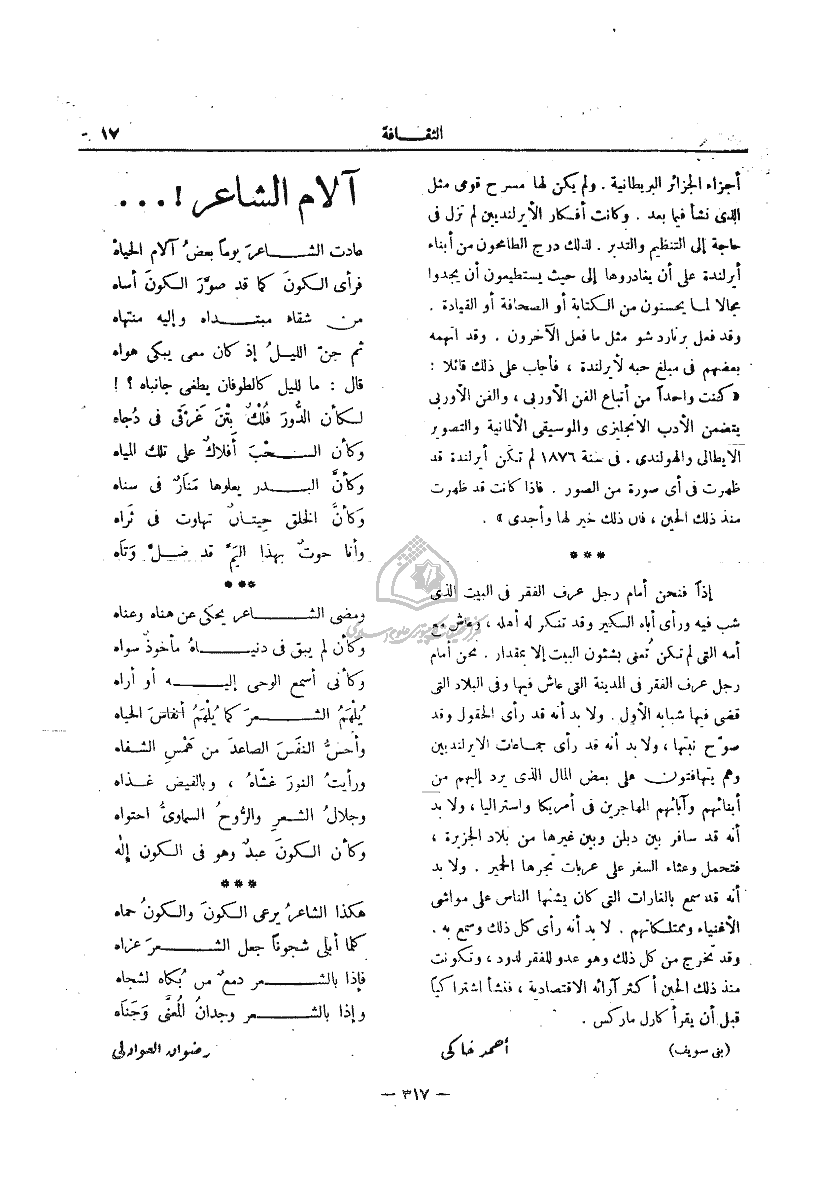 الثقافة
١٧
أجزاء الجزائر البريطانية . ولم يكن لها مسرح قومى مثل
الذى نشأ فيما بعد . وكانت أفكار الأيرلنديين لم تزل فى
حاجة إلى التنظيم والتدبر . لذلك درج الطامحون من أبناء
أيرلندة على أن يغادروها إلى حيث يستطيعون أن يجدوا
مجالا لما يحسنون من الكتابة أو الصحافة أو القيادة .
وقد فعل برنارد شو مثل ما فعل الآخرون . وقد اتهمه
بعضهم فى مبلغ حبه لأيرلندة ، فأجاب على ذلك قائلا :
« كنت واحداً من أتباع الفن الأوربى ، والفن الأوربى
يتضمن الأدب الانجليزى والموسيقى الألمانية والتصوير
الايطالى والهولندى . فى سنة ١٨٧٦ لم تكن أيرلندة قد
ظهرت فى أى صورة من الصور . فاذا كانت قد ظهرت
منذ ذلك الحين ، فان ذلك خير لها وأجدى » .
***
إذاً فنحن أمام رجل عرف الفقر فى البيت الذى
شب فيه ورأى أباه السكير وقد تنكر له أهله ، وعاش مع
أمه التى لم تكن تُعنى بشئون البيت إلا بمقدار . نحن أمام
رجل عرف الفقر فى المدينة التى عاش فيها وفى البلاد التى
قضى فيها شبابه الأول . ولا بد أنه قد رأى الحقول وقد
صوّح نبتها ، ولا بد أنه قد رأى جماعات الايرلنديين
وهم يتهافتون على بعض المال الذى يرد إليهم من
أبنائهم وآبائهم المهاجرين فى أمريكا واستراليا ، ولا بد
أنه قد سافر بين دبلن وبين غيرها من بلاد الجزيرة ،
فتحمل وعثاء السفر على عربات تجرها الحمير . ولا بد
أنه قد سمع بالغارات التى كان يشنها الناس على مواشى
الأغنياء وممتلكاتهم . لا بد أنه رأى كل ذلك وسمع به .
وقد تخرج من كل ذلك وهو عدو للفقر لدود ، وتكونت
منذ ذلك الحين أكثر آرائه الاقتصادية ، فنشأ اشتراكياً
قبل أن يقرأ كارل ماركس .
(بنى سويف) أحمد خاكى
آلام الشاعر ! . . .
عادت الشاعرَ يوماً بعضُ آلام الحياة
فرأى الكونَ كما قد صوَّرَ الكونَ أساه
من شقاء مبتداه وإليه منتهاه
ثم جنّ الليلُ إذ كان معى يبكى هواه
قال : ما لليل كالطوفان يطغى جانباه ؟ !
لكأن الدُّورَ فُلْكٌ بِتْنَ غَرْقَى فى دُجاه
وكأن السحْبَ أفلاكٌ على تلك المياه
وكأنَّ البدر يعلوها مَنَارٌ فى سناه
وكأنَّ الخلق حِيتانٌ تهاوت فى ثَراه
وأنا حوتٌ بهذا اليمّ قد ضلَّ وَتَاه
***
ومضى الشاعر يحكى عن هناه وعناه
وكأن لم يبق فى دنياهُ مأخوذٌ سواه
وكأنى أسمع الوحى إليه أو أراه
يُلهَمُ الشعرَ كما يُلهَمُ أنفاسَ الحياه
وأحسُّ النفَسَ الصاعدَ من هَمْسِ الشفاه
ورأيتُ النورَ غشّاهُ ، وبالفيض غذاه
وجلالُ الشعرِ والرُّوحُ السماوىُّ احتواه
وكأن الكونَ عبدٌ وهو فى الكون إلٰه
***
هكذا الشاعرُ يرعى الكونَ والكونُ حماه
كلما أبلى شجوناً جعل الشعرَ عزاه
فإذا بالشعر دمعٌ من بُكاه لشجاه
وإذا بالشعر وجدانُ المُعنَّى وَجَنَاه
رضوان العوادلى
— ٣١٧ —